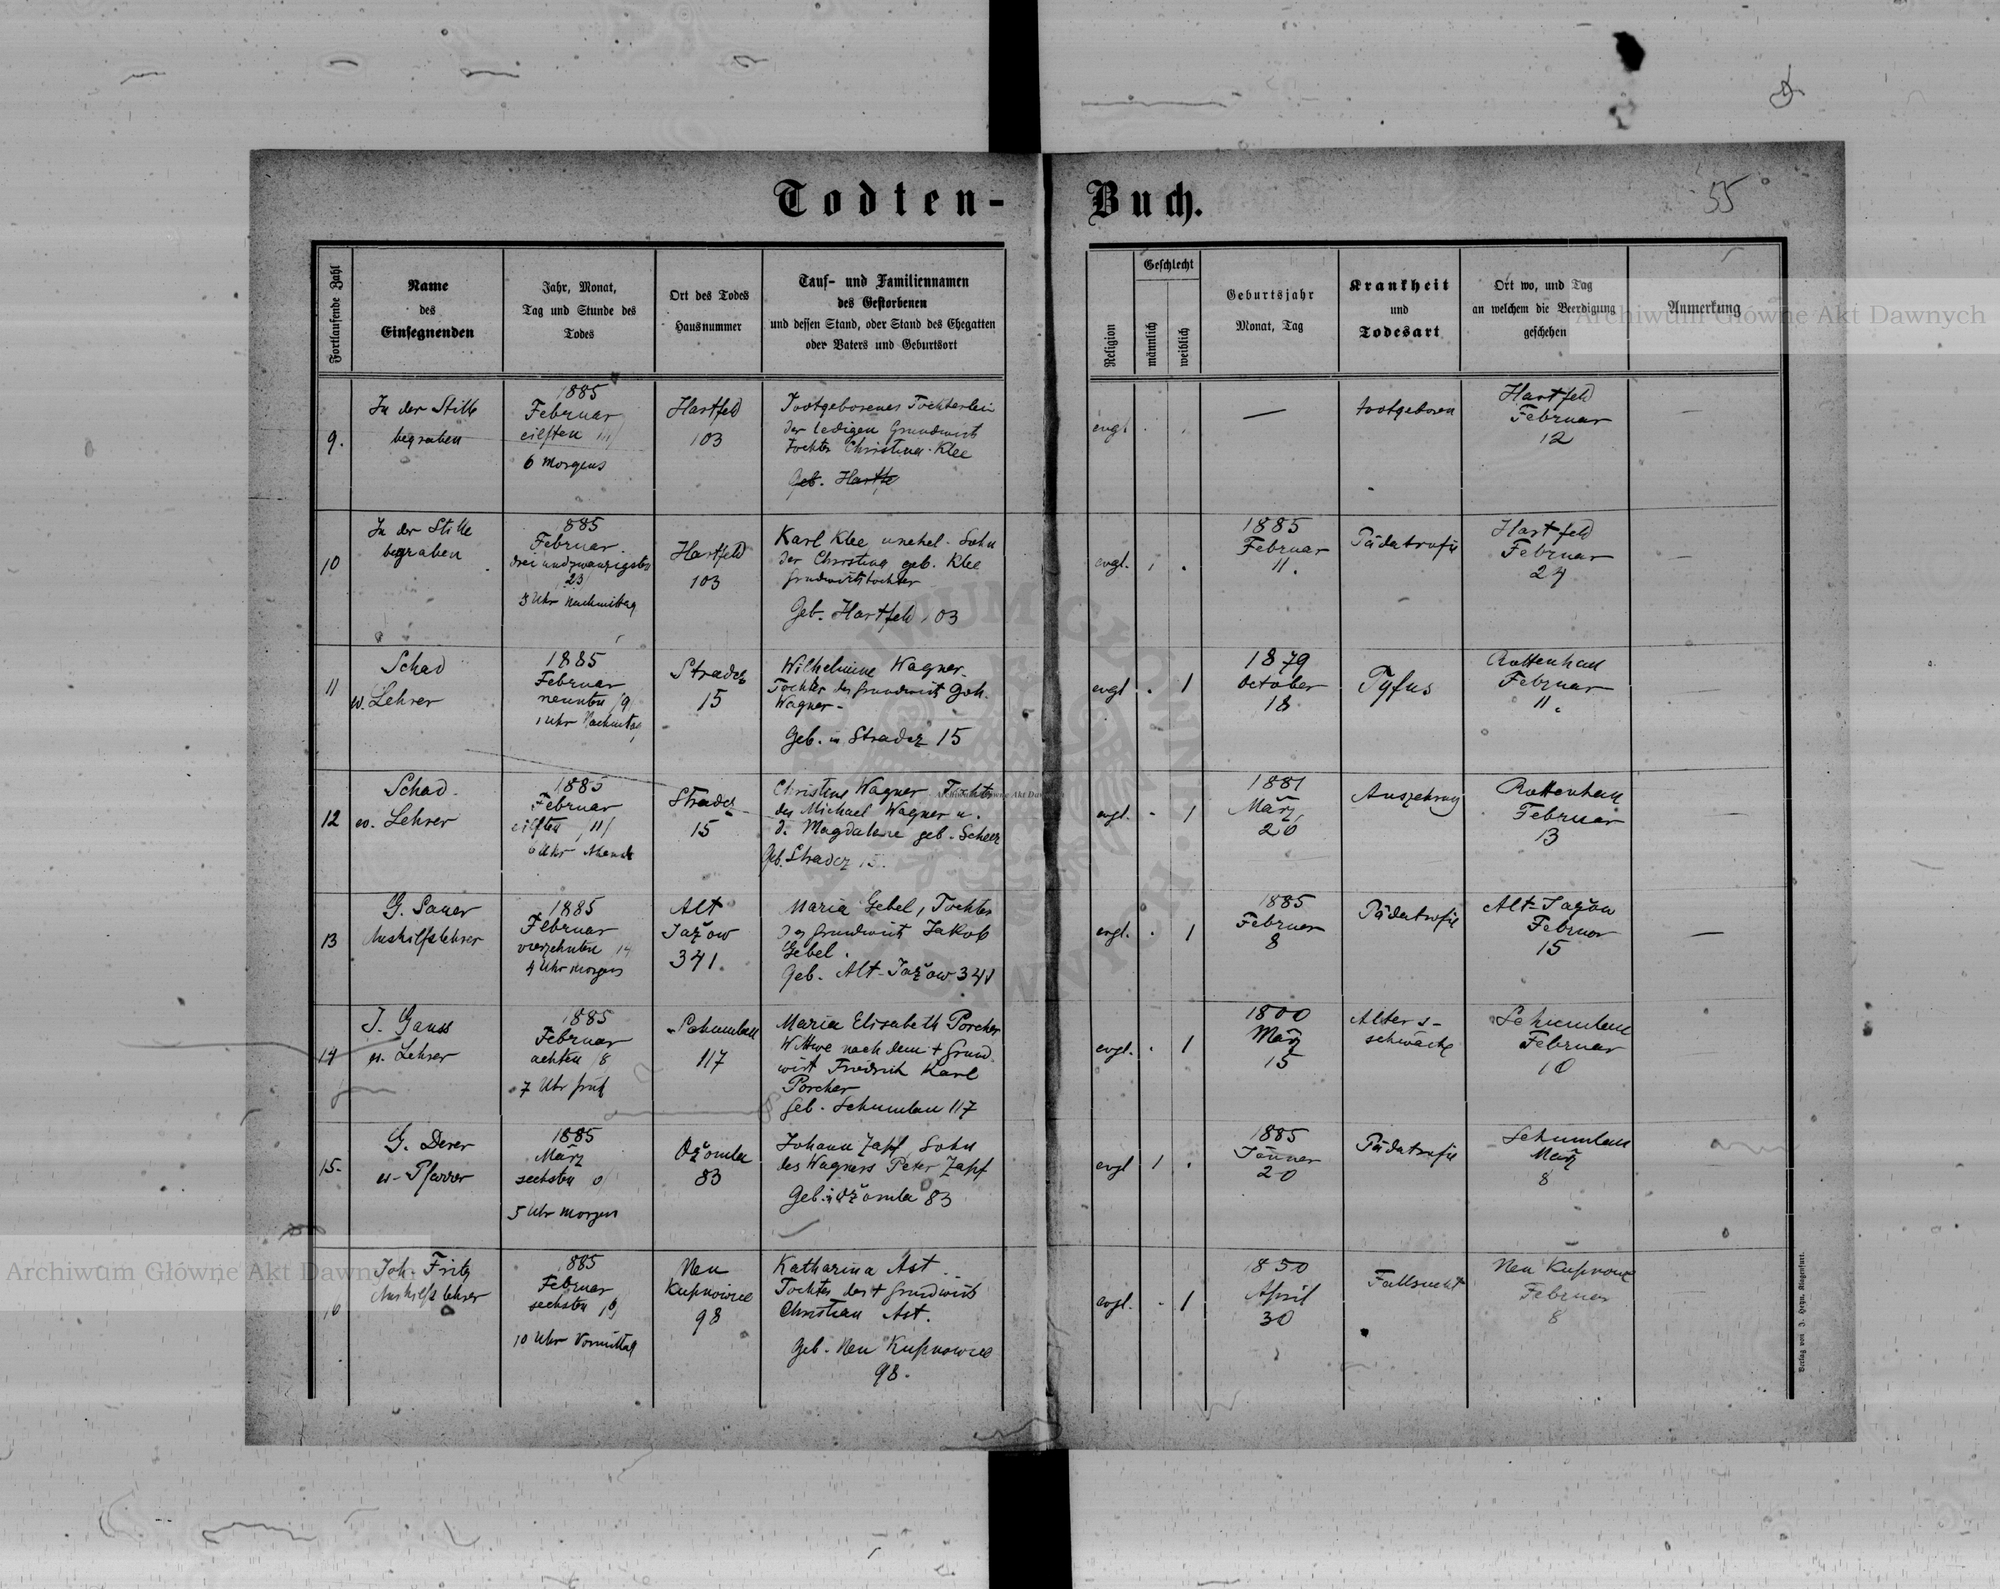 Todten-Buch.
55
Fortlaufende Zahl
Name
des
Einsegnenden
Jahr, Monat,
Tag und Stunde des
Todes
Ort des Todes
Hausnummer
Tauf- und Familiennamen
des Gestorbenen
und dessen Stand, oder Stand des Ehegatten
oder Vaters und Geburtsort
Religion
Geschlecht
männlich
weiblich
Geburtsjahr
Monat, Tag
Krankheit
und
Todesart
Ort wo, und Tag
an welchem die Beerdigung
geschehen
Anmerkung
9.
In der Stille
begraben
1885
Februar
eilften 11/
6 Morgens
Hartfeld
103
Todtgeborenes Töchterlein
der ledigen Grundwirt
tochter Christina Klee
Geb. Hartfe
evgl
—
todtgeboren
Hartfeld
Februar
12
—
10
In der Stille
begraben
1885
Februar
dreiundzwanzigsten
23/
3 Uhr Nachmittag
Hartfeld
103
Karl Klee unehel. Sohn
der Christina geb. Klee
Grundwirtstochter
Geb. Hartfeld 103
evgl.
1885
Februar
11.
Pädatrofie
Hartfeld
Februar
24
—
11
Schad
ev. Lehrer
1885
Februar
neunten /9/
1 Uhr Nachmittag
Stradcz
15
Wilhelmine Wagner
Tochter des Grundwirt Joh.
Wagner
Geb. in Stradcz 15
evgl
. 1
1879
October
18
Tyfus
Rottenhan
Februar
11.
12
Schad
ev. Lehrer
1885
Februar
eilften /11/
6 Uhr Abends
Stradcz
15
Christine Wagner Tochter
des Michael Wagner u.
d. Magdalene geb. Scherer
Geb. Stradcz 15.
evgl.
. 1
1881
März
26
Auszehrung
Rottenhan
Februar
13
—
13
G. Sauer
Aushilfslehrer
1885
Februar
vierzehnten 14
4 Uhr Morgens
Alt
Jažow
341.
Maria Gebel, Tochter
des Grundwirt Jakob
Gebel.
Geb. Alt-Jažow 341
evgl.
. 1
1885
Februar
8
Pädatrofie
Alt-Jažow
Februar
15
—
14
J. Gauss
ev. Lehrer
1885
Februar
achten /8
7 Uhr früh
Schumlau
117
Maria Elisabeth Porcher
Wittwe nach dem + Grund-
wirt Friedrich Karl
Porcher
Geb. Schumlau 117
evgl.
. 1
1800
März
15
Alters-
schwäche
Schumlau
Februar
10
15.
G. Derer
ev. Pfarrer
1885
März
sechsten 6/
5 Uhr Morgens
Ožomla
83
Johann Zapf Sohn
des Wagners Peter Zapf
Geb. in Ožomla 83
evgl
1 .
1885
Jänner
20
Pädatrofie
Schumlau
März
8
16
Joh. Fritz
Aushilfslehrer
1885
Februar
sechsten /6/
10 Uhr Vormittag
Neu
Kupnowice
98
Katharina Ast
Tochter des + Grundwirt
Christian Ast.
Geb. Neu Kupnowice
98.
evgl.
. 1
1850
April
30
Fallsucht
Neu Kupnowice
Februar
8
Verlag von J. Heyn, Klagenfurt.
Archiwum Główne Akt Dawnych
Archiwum Główne Akt Dawnych
Archiwum Główne Akt Dawnych